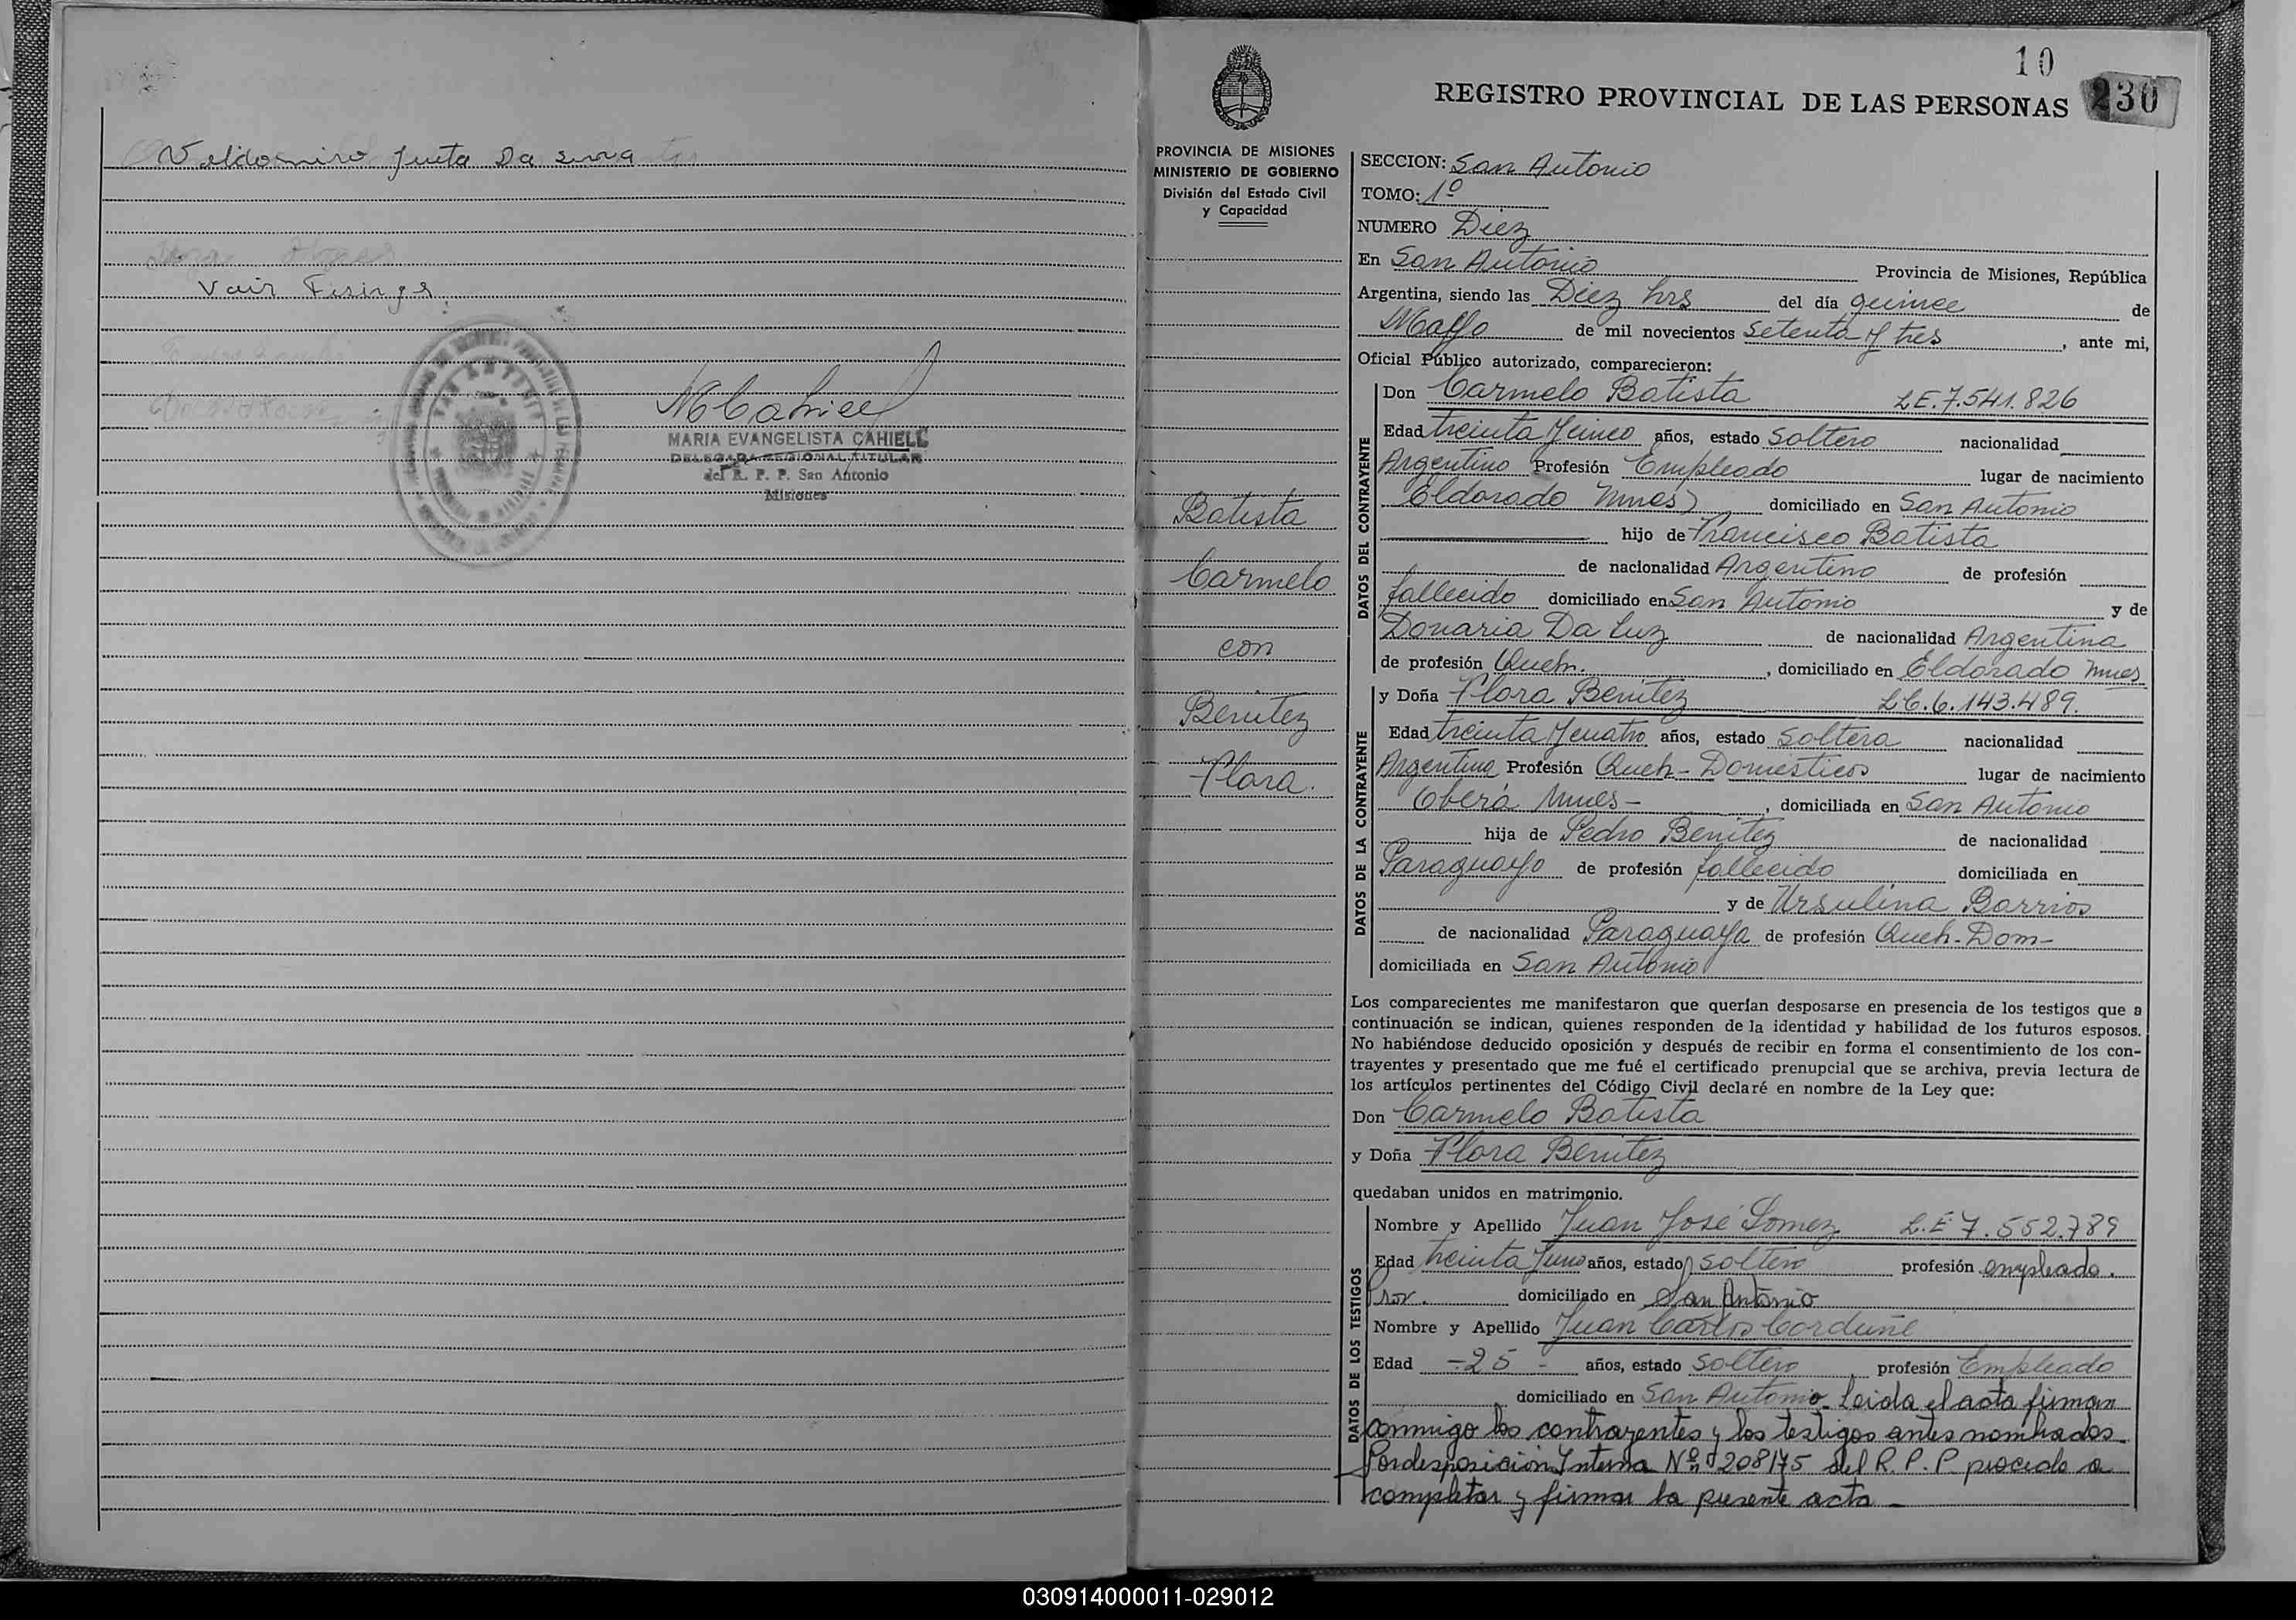 Valdomiro Junta Da
Vair
MARIA EVANGELISTA CAHIELL
DELEGADA REGIONAL TITULAR
del R. P. P. San Antonio
Misiones
10
230
REGISTRO PROVINCIAL DE LAS PERSONAS
PROVINCIA DE MISIONES
MINISTERIO DE GOBIERNO
División del Estado Civil
y Capacidad
Batista
Carmelo
con
Benitez
Flora.
SECCION: San Antonio
TOMO: 1º
NUMERO Diez
En San Antonio Provincia de Misiones, República
Argentina, siendo las Diez hrs del día quince de
Mayo de mil novecientos setenta y tres, ante mi,
Oficial Público autorizado, comparecieron:
DATOS DEL CONTRAYENTE
Don Carmelo Batista LE.7.541.826
Edad treinta y cinco años, estado Soltero nacionalidad
Argentino Profesión Empleado lugar de nacimiento
Eldorado Mnes) domiciliado en San Antonio
hijo de Francisco Batista
de nacionalidad Argentino de profesión
fallecido domiciliado en San Antonio y de
Donaria Da Luz de nacionalidad Argentina
de profesión Queh., domiciliado en Eldorado Mnes
DATOS DE LA CONTRAYENTE
y Doña Flora Benitez LC.6.143.489.
Edad treinta y cuatro años, estado Soltera nacionalidad
Argentina Profesión Queh-Domesticos lugar de nacimiento
Oberá Mnes-, domiciliada en San Antonio
hija de Pedro Benitez de nacionalidad
Paraguayo de profesión fallecido domiciliada en
y de Ursulina Barrios
de nacionalidad Paraguaya de profesión Queh-Dom-
domiciliada en San Antonio
Los comparecientes me manifestaron que querían desposarse en presencia de los testigos que a
continuación se indican, quienes responden de la identidad y habilidad de los futuros esposos.
No habiéndose deducido oposición y después de recibir en forma el consentimiento de los con-
trayentes y presentado que me fué el certificado prenupcial que se archiva, previa lectura de
los artículos pertinentes del Código Civil declaré en nombre de la Ley que:
Don Carmelo Batista
y Doña Flora Benitez
quedaban unidos en matrimonio.
DATOS DE LOS TESTIGOS
Nombre y Apellido Juan José Gomez L.E 7.552.789
Edad treinta y uno años, estado soltero profesión empleado.
Prov. domiciliado en San Antonio
Nombre y Apellido Juan Carlos
Edad -25- años, estado Soltero profesión Empleado
domiciliado en San Antonio. Leida el acta firman
conmigo los contrayentes y los testigos antes nombrados.
Pordesposición Interna Nº 208/75 del R. P. P. procedo a
completar y firmar la presente acta-
030914000011-029012